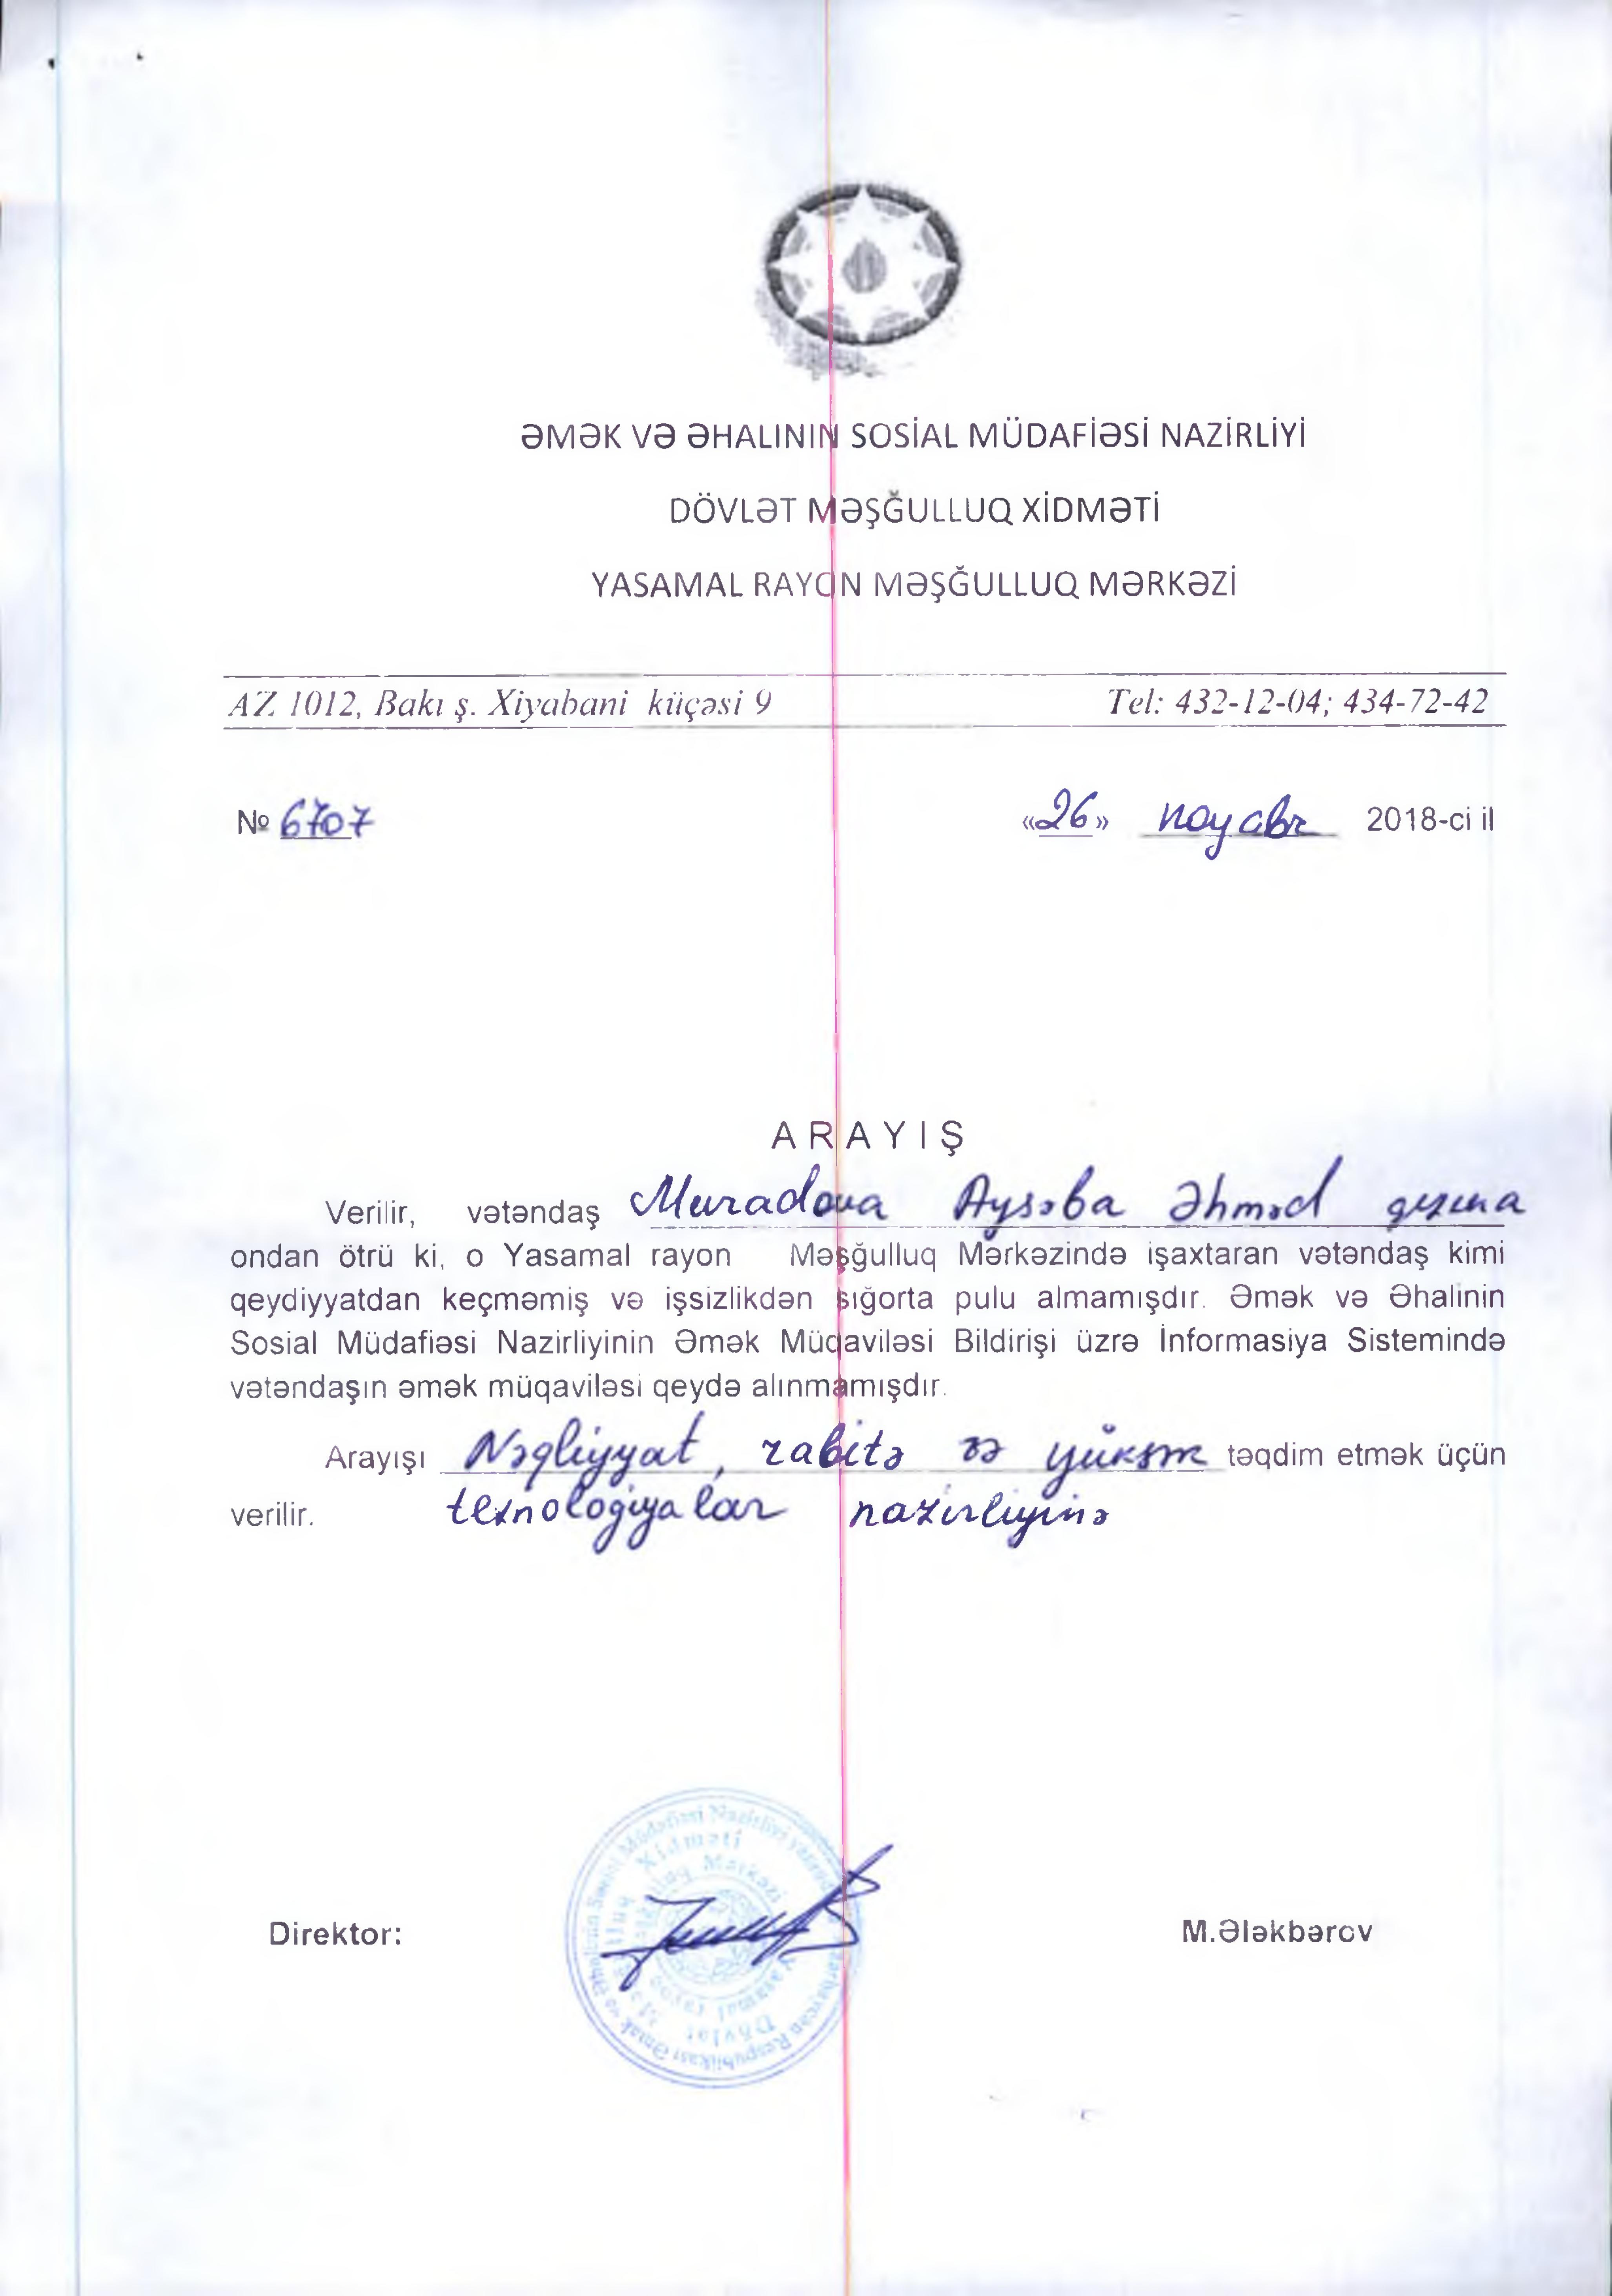 ƏMƏK VƏ ƏHALININ SOSİAL MÜDAFİƏSİ NAZİRLİYİ
DÖVLƏT MƏŞĞULLUQ XİDMƏTİ
YASAMAL RAYON MƏŞĞULLUQ MƏRKƏZİ
AZ 1012, Bakı ş. Xiyabani küçəsi 9 Tel: 432-12-04; 434-72-42
№ 6707 «26» noyabr 2018-ci il
ARAYIŞ
Verilir, vətəndaş Muradova Aysəba Əhməd qızına
ondan ötrü ki, o Yasamal rayon Məşğulluq Mərkəzində işaxtaran vətəndaş kimi
qeydiyyatdan keçməmiş və işsizlikdən sığorta pulu almamışdır. Əmək və Əhalinin
Sosial Müdafiəsi Nazirliyinin Əmək Müqaviləsi Bildirişi üzrə İnformasiya Sistemində
vətəndaşın əmək müqaviləsi qeydə alınmamışdır.
Arayışı Nəqliyyat, rabitə və yüksək təqdim etmək üçün
verilir. texnologiyalar nazirliyinə
Direktor: M.Ələkbərov